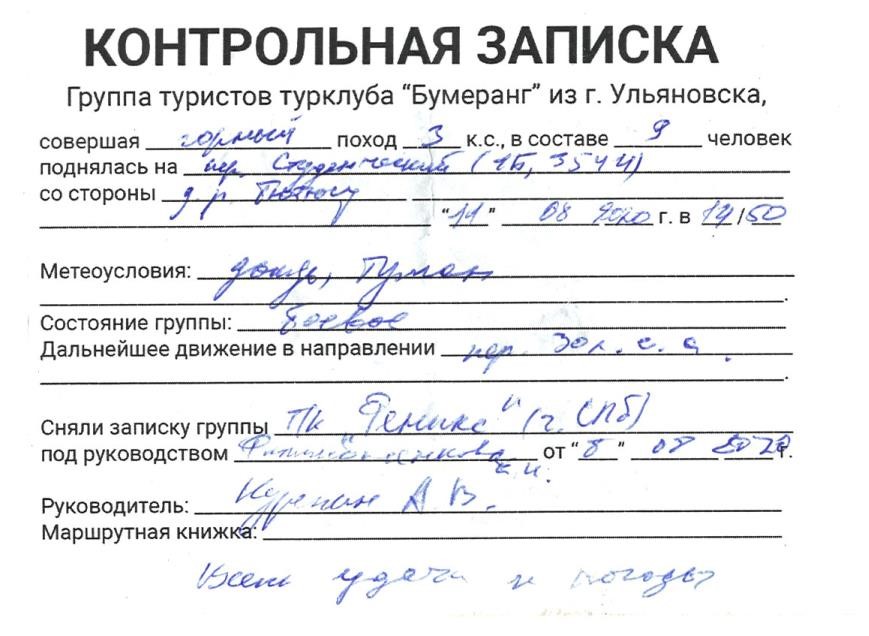 КОНТРОЛЬНАЯ ЗАПИСКА
Группа туристов турклуба “Бумеранг” из г. Ульяновска,
совершая горный поход 3 к.с., в составе 9 человек
поднялась на пер. Студенческий (1Б, 3544)
со стороны д.р.
“11” 08 2020 г. в 14/50
Метеоусловия: дождь, туман
Состояние группы: боевое
Дальнейшее движение в направлении пер.
Сняли записку группы ПК "Феникс" (г. СПб)
под руководством от “8” 08 2020 г.
Руководитель: Курепин А В.
Маршрутная книжка:
Всем удачи и погоды